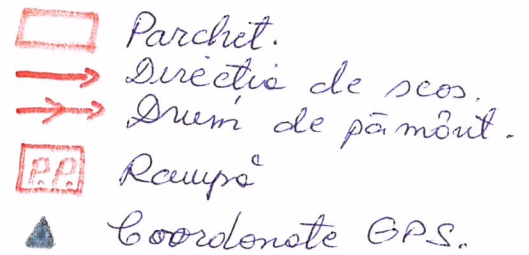 Parchet.
Direcția de scos.
Drum de pământ.
P.P. Rampă
Coordonate GPS.